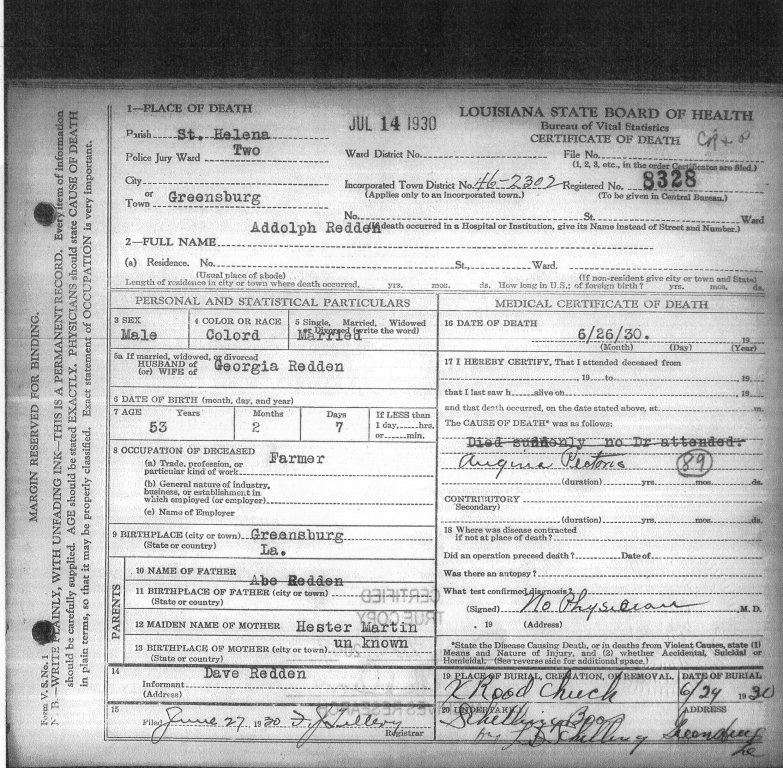 1—PLACE OF DEATH
JUL 14 1930
LOUISIANA STATE BOARD OF HEALTH
Bureau of Vital Statistics
CERTIFICATE OF DEATH
Parish St. Helena
Police Jury Ward Two
Ward District No.
File No.
(1, 2, 3, etc., in the order Certificates are filed.)
City
or
Town Greensburg
Incorporated Town District No. 46-2302 Registered No. 8328
(Applies only to an incorporated town.) (To be given in Central Bureau.)
No. St. Ward
(If death occurred in a Hospital or Institution, give its Name instead of Street and Number.)
Addolph Redden
2—FULL NAME
(a) Residence. No. St., Ward.
(Usual place of abode) (If non-resident give city or town and State)
Length of residence in city or town where death occurred, yrs. mos. ds. How long in U.S.; of foreign birth? yrs. mos. ds.
PERSONAL AND STATISTICAL PARTICULARS
3 SEX
Male
4 COLOR OR RACE
Colord
5 Single, Married, Widowed
or Divorced (write the word)
Married
5a If married, widowed, or divorced
HUSBAND of
(or) WIFE of
Georgia Redden
6 DATE OF BIRTH (month, day, and year)
7 AGE Years Months Days
53 2 7
If LESS than
1 day, hrs.
or min.
8 OCCUPATION OF DECEASED
Farmer
(a) Trade, profession, or
particular kind of work
(b) General nature of industry,
business, or establishment in
which employed (or employer)
(c) Name of Employer
9 BIRTHPLACE (city or town) Greensburg
(State or country) La.
PARENTS
10 NAME OF FATHER
Abe Redden
11 BIRTHPLACE OF FATHER (city or town)
(State or country)
12 MAIDEN NAME OF MOTHER Hester Martin
13 BIRTHPLACE OF MOTHER (city or town) un known
(State or country)
14
Informant Dave Redden
(Address)
15
Filed June 27, 1930
Registrar
MEDICAL CERTIFICATE OF DEATH
16 DATE OF DEATH
6/26/30. 19
(Month) (Day) (Year)
17 I HEREBY CERTIFY, That I attended deceased from
19 to , 19
that I last saw h alive on , 19
and that death occurred, on the date stated above, at m.
The CAUSE OF DEATH* was as follows:
Died suddenly no Dr attended.
Angina Pectoris 89
(duration) yrs. mos. ds.
CONTRIBUTORY
Secondary)
(duration) yrs. mos. ds.
18 Where was disease contracted
if not at place of death?
Did an operation preceed death? Date of
Was there an autopsy?
What test confirmed diagnosis?
(Signed) No Physician M. D.
, 19 (Address)
*State the Disease Causing Death, or in deaths from Violent Causes, state (1)
Means and Nature of Injury, and (2) whether Accidental, Suicidal or
Homicidal. (See reverse side for additional space.)
19 PLACE OF BURIAL, CREMATION, OR REMOVAL. DATE OF BURIAL
6/27 1930
20 UNDERTAKER ADDRESS
Schilling
by Schilling Greensburg
La
MARGIN RESERVED FOR BINDING.
Form V. S. No. 1
N. B.—WRITE PLAINLY, WITH UNFADING INK—THIS IS A PERMANENT RECORD. Every item of information
should be carefully supplied. AGE should be stated EXACTLY. PHYSICIANS should state CAUSE OF DEATH
in plain terms, so that it may be properly classified. Exact statement of OCCUPATION is very important.